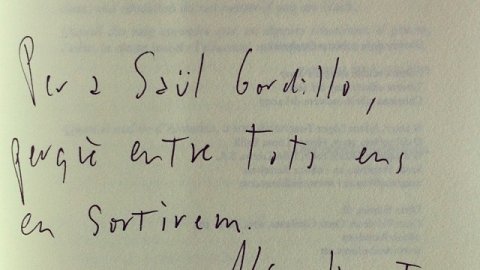 Per a Saül Gordillo,
perquè entre tots ens
en sortirem.